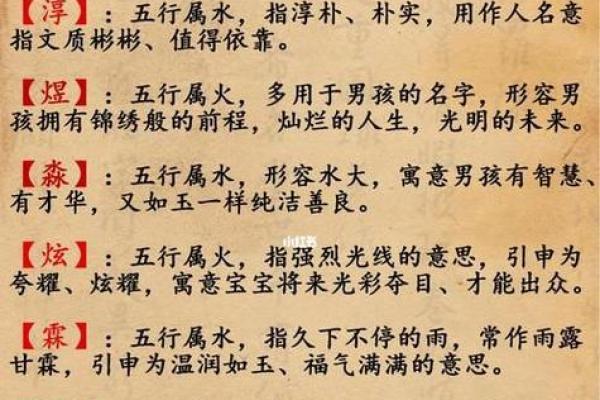 【淳】：五行属水，指淳朴、朴实，用作人名意
指文质彬彬、值得依靠。
【煜】：五行属火，多用于男孩的名字，形容男
孩拥有锦绣般的前程，灿烂的人生，光明的未来。
【淼】：五行属水，形容水大，寓意男孩有智慧、
有才华，又如玉一样纯洁善良。
【炫】：五行属火，指强烈光线的意思，引申为
夸耀、炫耀，寓意宝宝将来光彩夺目、才能出众。
小红书
【霖】：五行属水，指久下不停的雨，常作雨露
甘霖，引申为温润如玉、福气满满的意思。